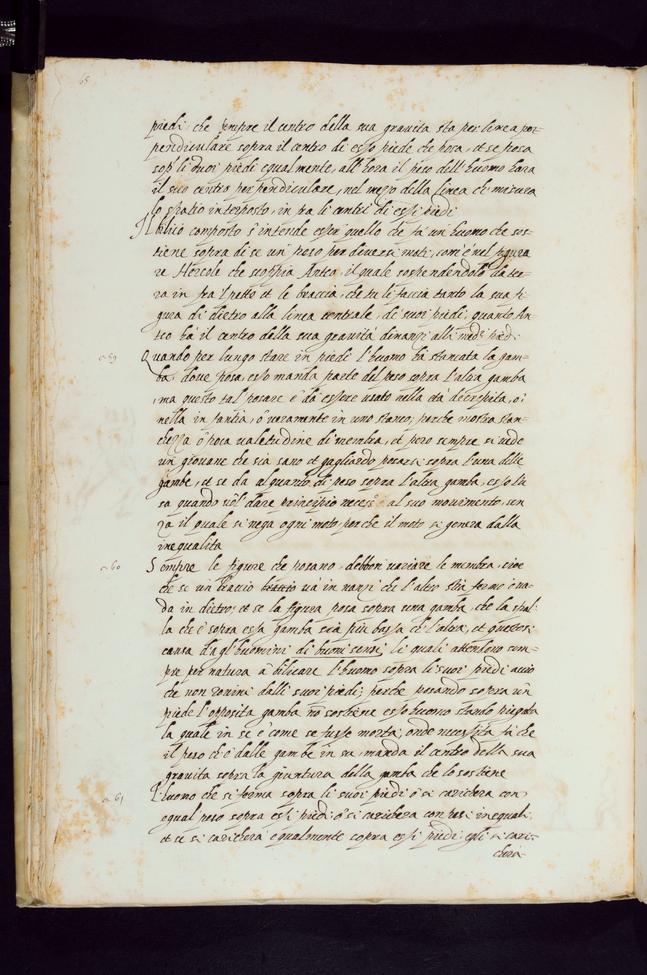 65
piedi che sempre il centro della sua gravita sta per linea per-
pendiculare sopra il centro di esso piede che posa, et se posa
sop.ª li duoi piedi egualmente, all'hora il peso dell'huomo hara
il suo centro perpendiculare, nel mezo della linea che misura
lo spatio interposto, in fra li centri di essi piedi
Il bilico composto s'intende esser quello che fa un huomo che sos-
tiene sopra di se un peso per diversi moti, com'è nel figura
re Hercole che scoppia Anteo, il quale sospendendolo da ter-
ra in fra 'l petto et le braccia, che tu li faccia tanto la sua fi
gura di dietro alla linea centrale, di suoi piedi, quanto An-
teo ha il centro della sua gravita dinanzi alli med.i piedi
c. 59
Quando per lungo stare in piedi l'huomo ha stancata la gam-
ba, dove posa, esso manda parte del peso sopra l'altra gamba
, ma questo tal posare è da essere usato nella età decrepita, ò
nella infantia, ò veramente in uno stanco, perche mostra stan-
chezza ò poca valetudine di membra, et pero sempre si vede
un giovane che sia sano et gagliardo posarsi sopra l'una delle
gambe, et se da alquanto di peso sopra l'altra gamba, esso l'u
sa quando vol dare principio necess.º al suo movimento, sen
za il quale si nega ogni moto perche il moto si genera dalla
inequalita
c. 60
Sempre le figure che posano, debbon variare le membra, cioe
che se un braccio và innanzi che l'altro stia fermo ò va-
da in dietro, et se la figura posa sopra una gamba, che la spal-
la che è sopra essa gamba sia più bassa che l'altra, et questo si
causa dagl'huomini di buoni sensi, li quali attendono sem-
pre per natura à bilicare l'huomo sopra li suoi piedi accio
che non rovini dalli suoi piedi, perche posando sopra un
piede l'opposita gamba nõ sostiene esso huomo stando piegata
la quale in se è come se fusse morta, onde necessita fà che
il peso ch'è dalle gambe in su, manda il centro della sua
gravita sopra la giuntura della gamba che lo sostiene
c. 61
L'huomo che si ferma sopra li suoi piedi ò si carichera con
egual peso sopra essi piedi ò si carichera con pesi ineguali
et se si carichera egualmente sopra essi piedi egli si cari-
chera